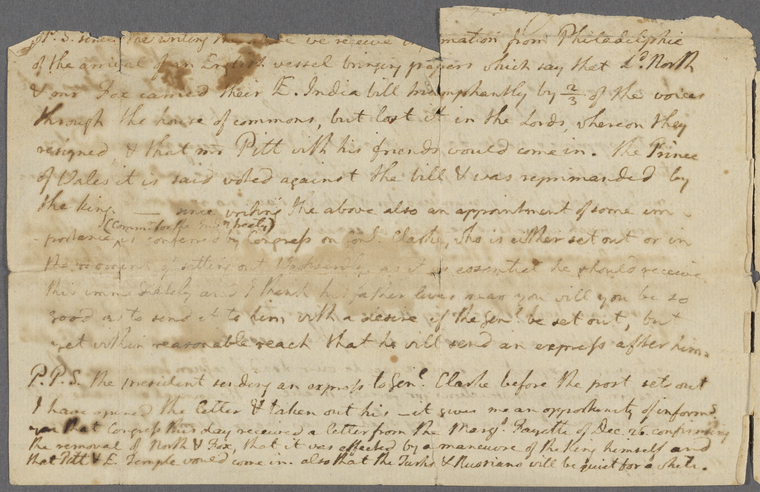 P. S. since the writing the we receive information from Philadelphia
of the arrival of an English vessel bringing papers which say that Ld. North
& mr Fox carried their E. India bill triumphantly by 2/3 of the voices
through the house of commons, but lost it in the Lords, whereon they
resigned & that mr Pitt with his friends would come in. the Prince
of Wales it is said voted against the bill & was reprimanded by
the king. — since writing the above also an appointment of some im
(Commr. for the Indn. treaty)
portance is conferred by Congress on Genl. Clarke, who is either set out or in
the moment of setting out Westwardly. as it is essential he should receive
this immediately and I think his father lives near you will you be so
good as to send it to him with a desire if the Genl. be set out, but
yet within reasonable reach that he will send an express after him.
P.P.S. the president sending an express to Genl. Clarke before the post sets out
I have opened the letter & taken out his — it gives me an opportunity of informg
you that Congress this day received a letter from the Marqs. Fayette of Dec. 26 confirming
the removal of North & Fox, that it was effected by a maneuvre of the king himself and
that Pitt & E. Temple would come in. also that the Turks & Russians will be quiet for a while.